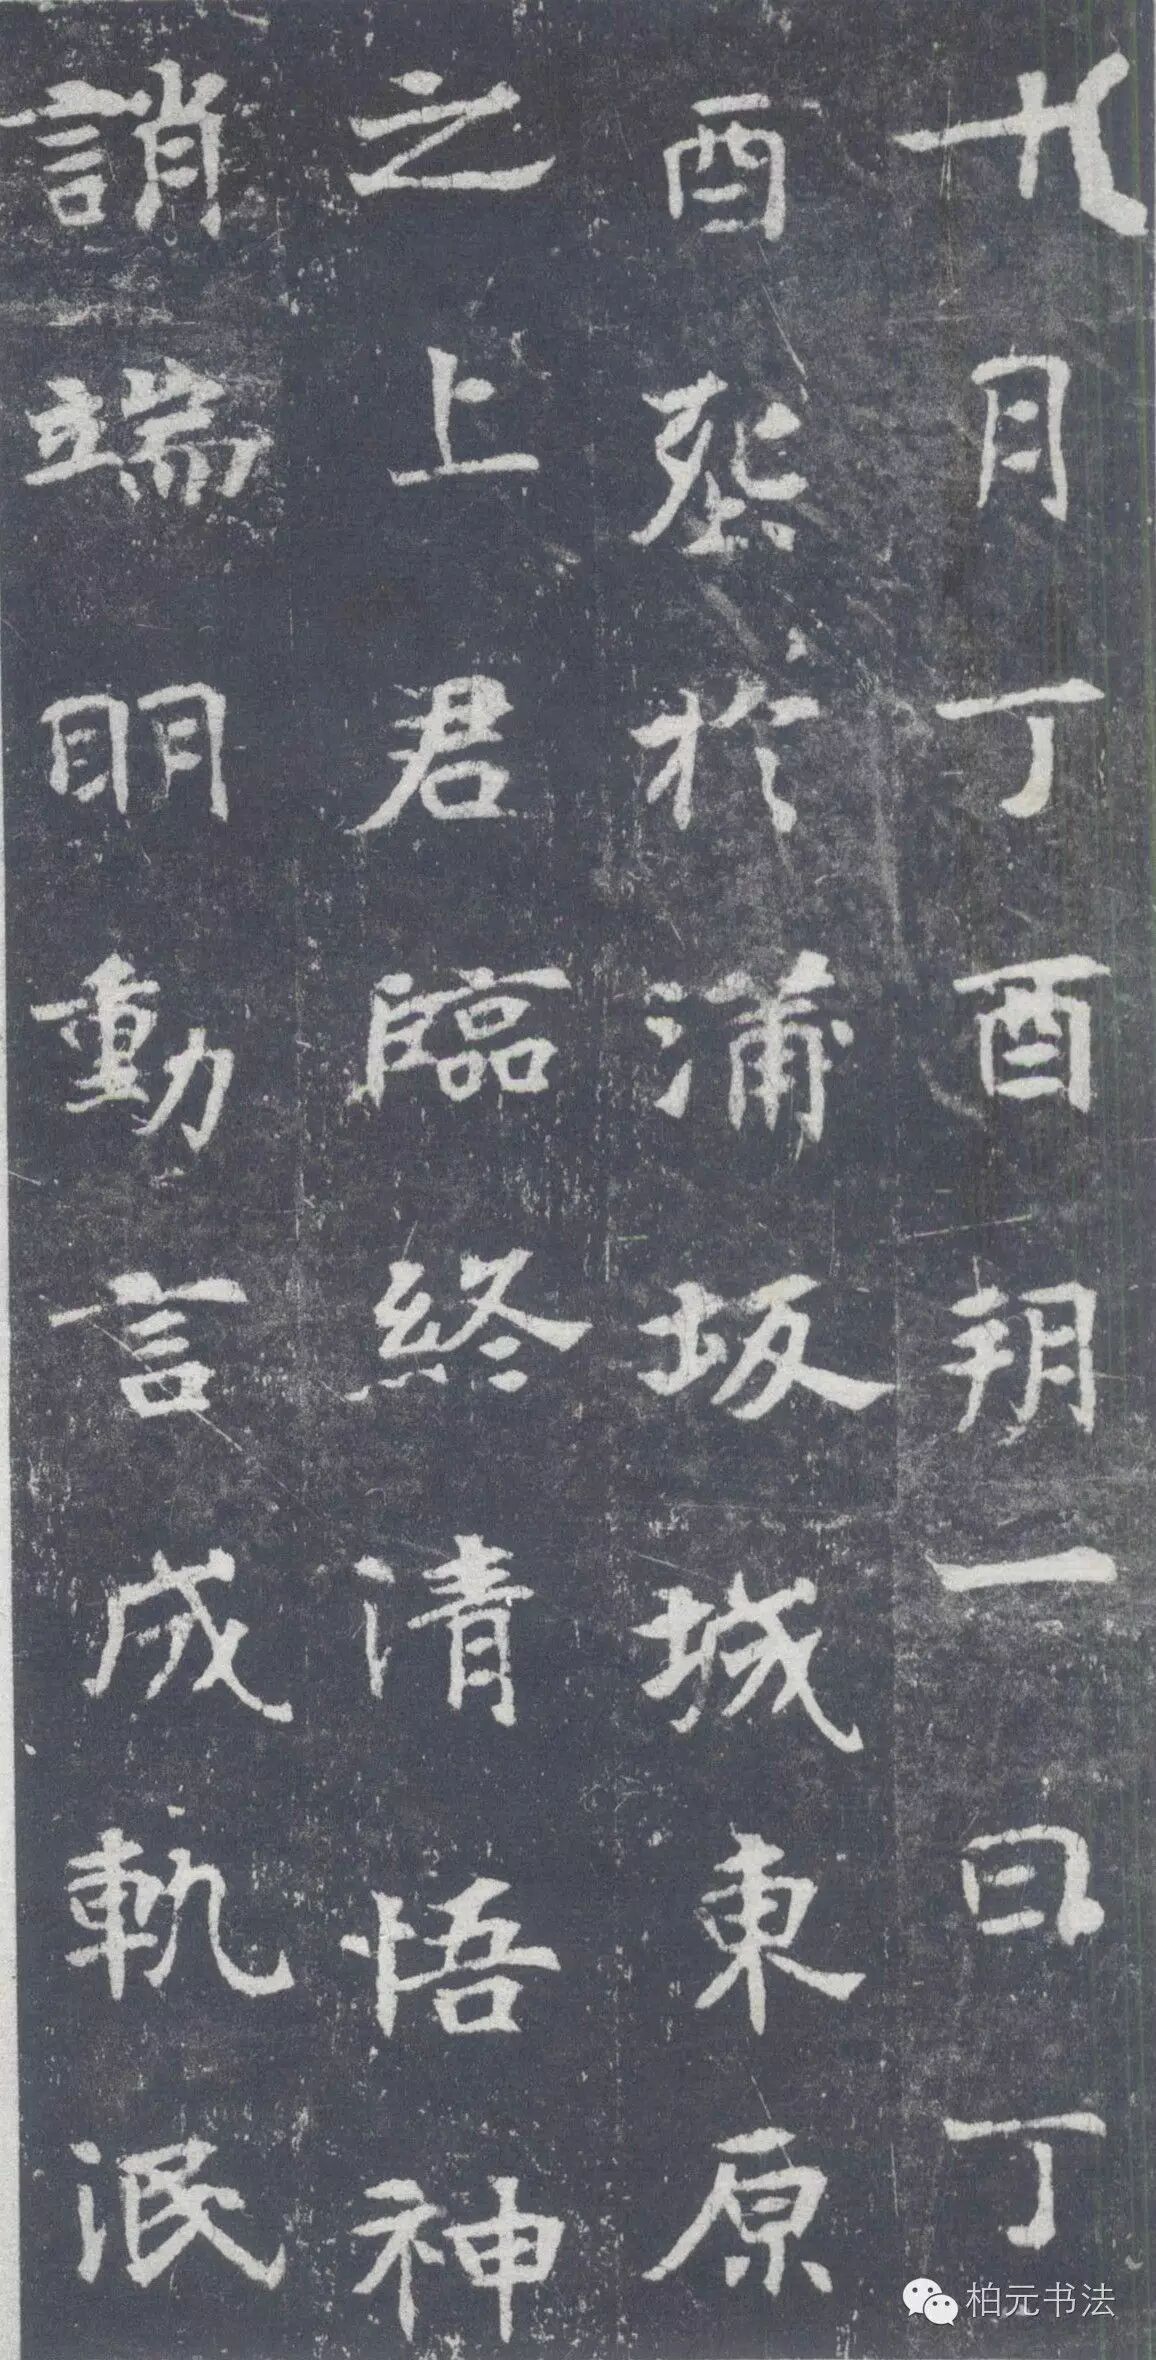 十月丁酉朔一日丁
酉葬於蒲坂城東原
之上君臨終清悟神
誚端明動言成軌泯
柏元书法